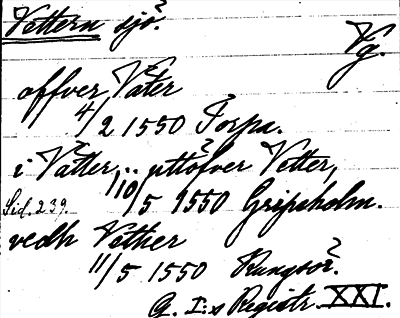 Vettern sjö.
Vg.
offver Väter
4/2 1550 Torpa.
i Vätter, .. uttöfver Vetter,
Sid. 239. 1/10/5 1550 Gripsholm.
vedh Vether
11/5 1550 Kungsör.
G. I:s Registr. XXI.